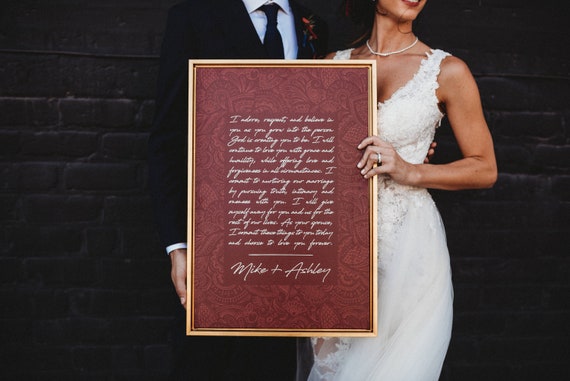 I adore, respect, and believe in
you as you grow into the person
God is creating you to be. I will
continue to love you with grace and
humility, while offering love and
forgiveness in all circumstances. I
commit to nurturing our marriage
by pursuing truth, intimacy and
oneness with you. I will give
myself away for you and us for the
rest of our lives. As your spouse,
I commit these things to you today
and choose to love you forever.
Mike + Ashley